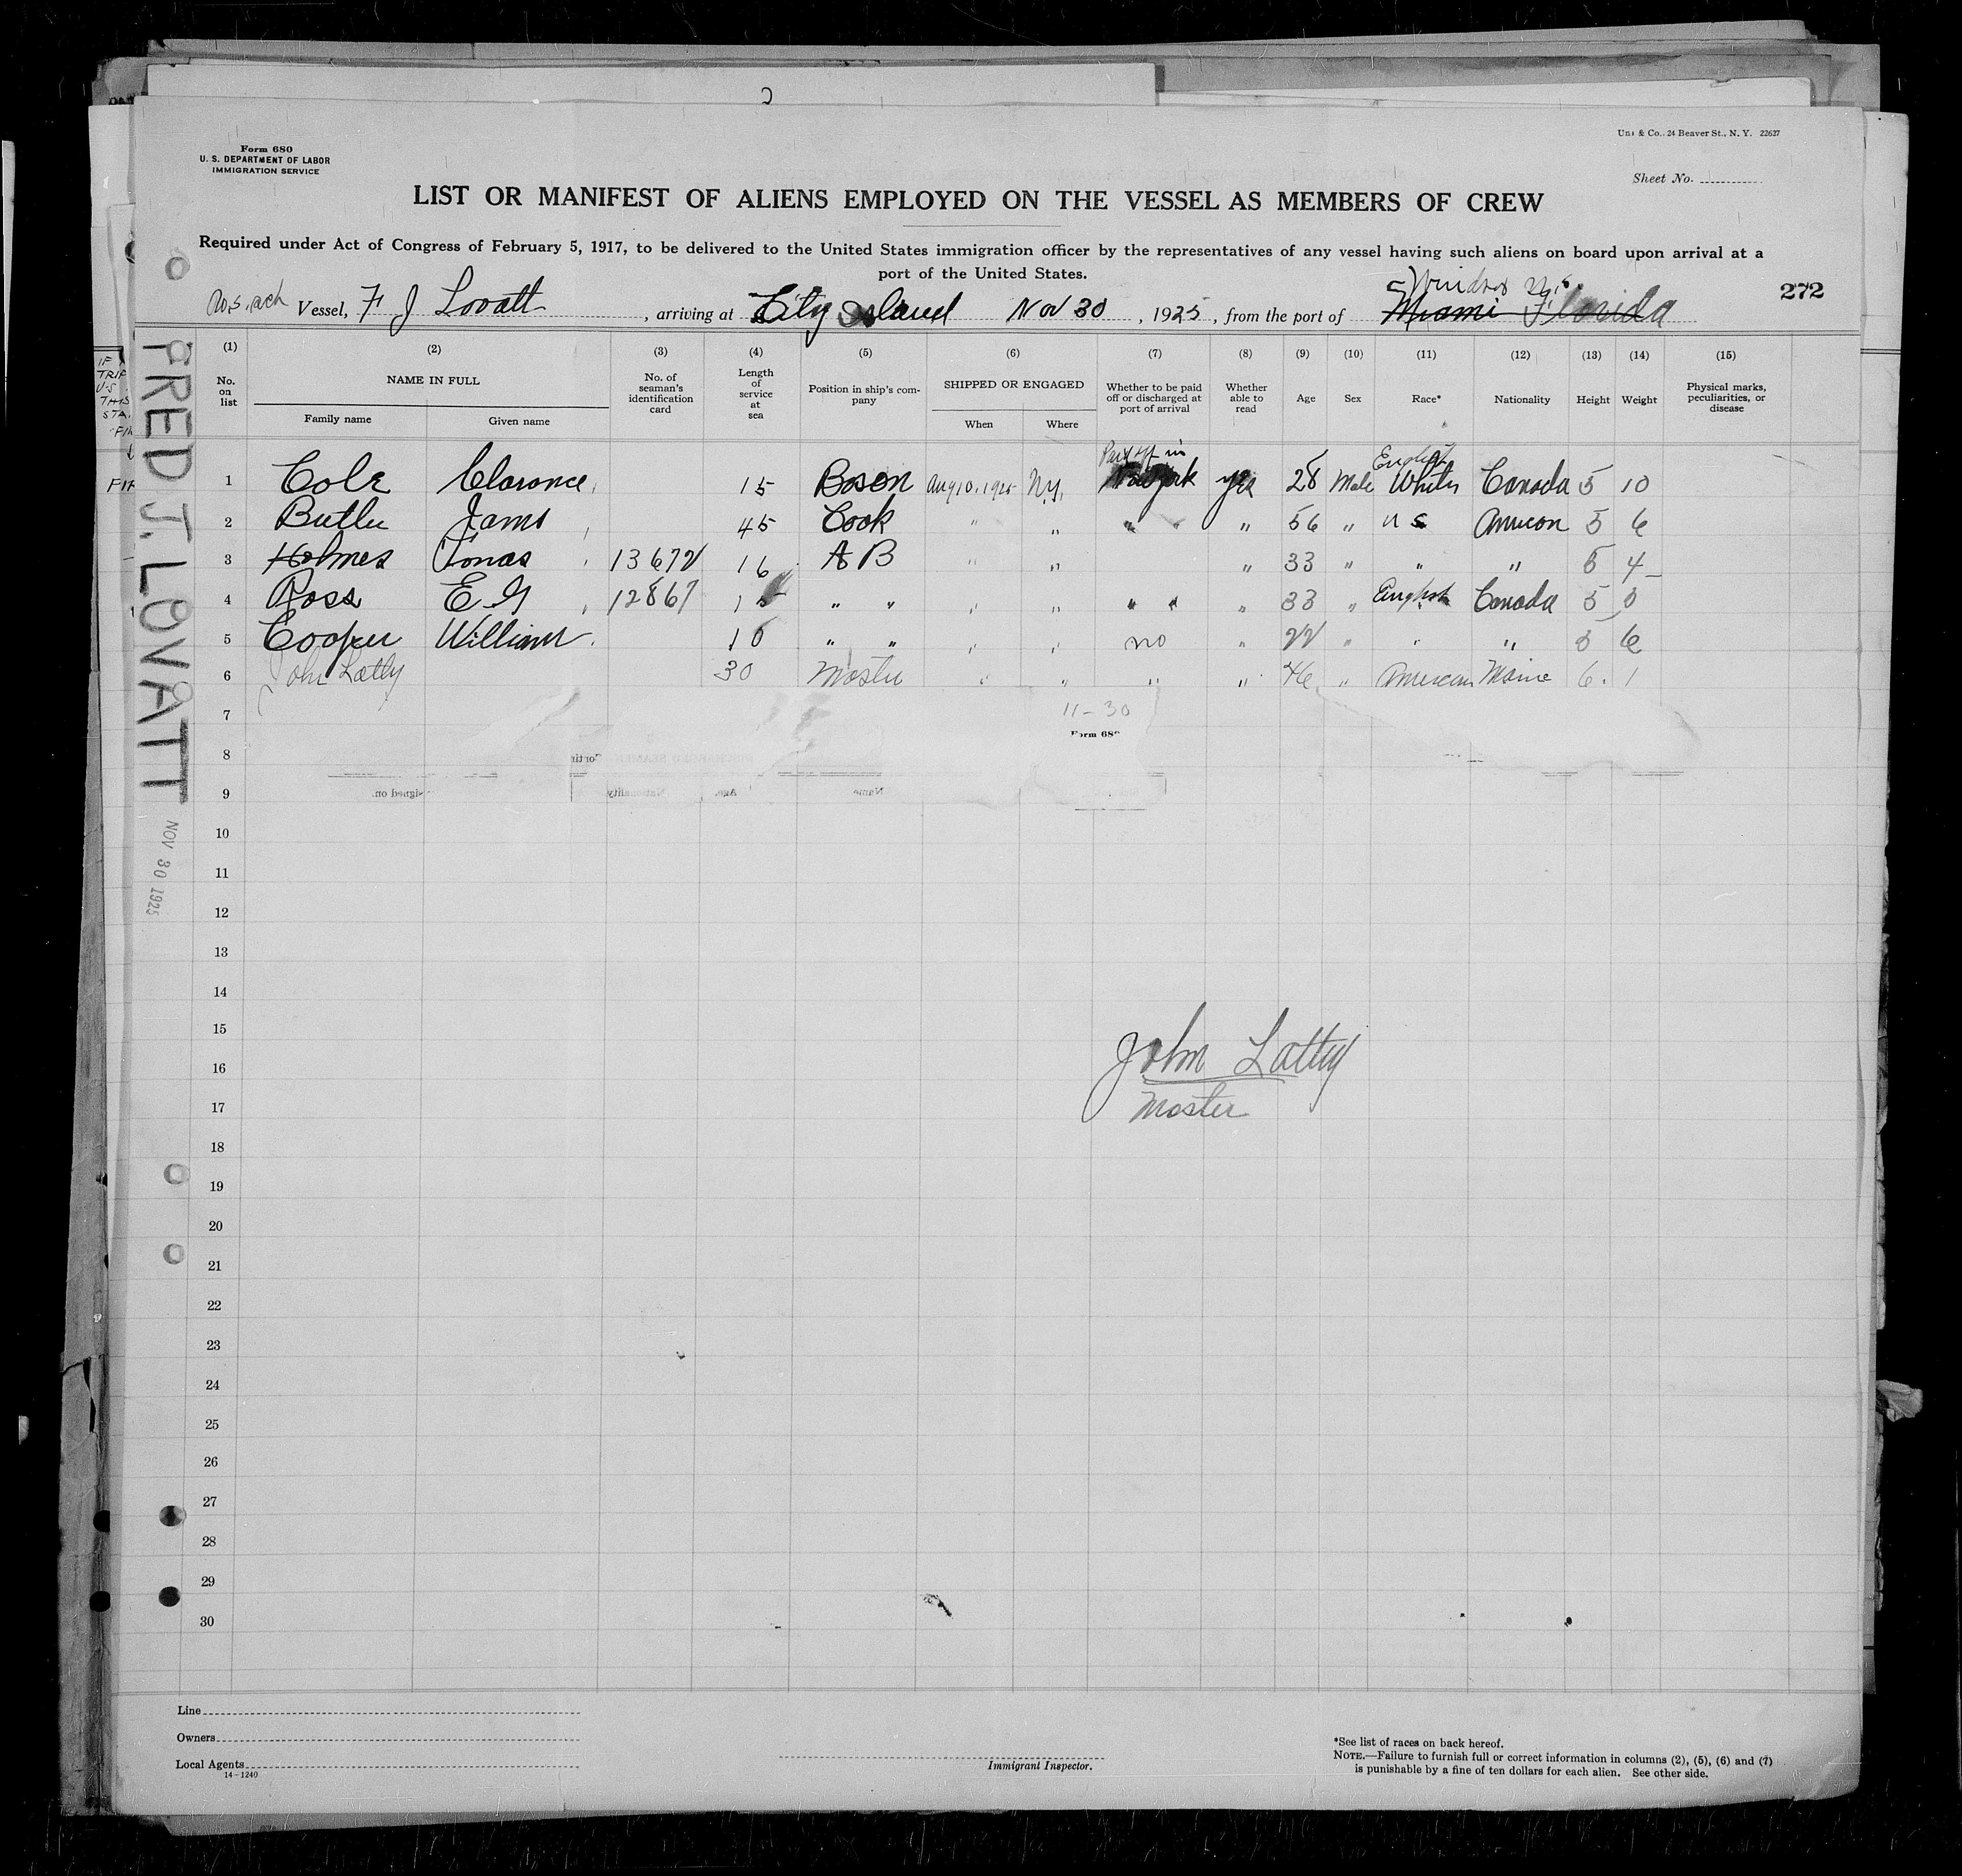 Form 680
U. S. DEPARTMENT OF LABOR
IMMIGRATION SERVICE
& Co., 24 Beaver St., N. Y. 22627
Sheet No.
LIST OR MANIFEST OF ALIENS EMPLOYED ON THE VESSEL AS MEMBERS OF CREW
Required under Act of Congress of February 5, 1917, to be delivered to the United States immigration officer by the representatives of any vessel having such aliens on board upon arrival at a
port of the United States.
Windsor
272
Vessel, F J Lovatt, arriving at City Island Nov 30, 1925, from the port of Miami Florida
(1) (2) (3) (4) (5) (6) (7) (8) (9) (10) (11) (12) (13) (14) (15)
No. on list NAME IN FULL Family name Given name No. of seaman's identification card Length of service at sea Position in ship's company SHIPPED OR ENGAGED When Where Whether to be paid off or discharged at port of arrival Whether able to read Age Sex Race* Nationality Height Weight Physical marks, peculiarities, or disease
Pay off in English
1 Cole Clarence 15 Bosen Aug 10, 1925 N.Y. yes 28 Male White Canada 5 10
2 Butler James 45 Cook " " " " " 56 " U S American 5 6
3 Holmes Jonas 13672 16 A B " " " 33 " " " 5 4
4 Ross E G 12867 " " " " " " " 33 " English Canada 5
5 Cooper William 10 " " " " no " 22 " " " 5 6
6 John Latty 30 Master " " " " 46 " American Maine 6. 1
7
11-30
Form 68
8
9
signed on. Nationality Age. Name
10
11
12
13
14
15
16
17
18
19
20
21
22
23
24
25
26
27
28
29
30
John Latty
Master
FRED J. LOVATT
NOV 30 1925
Line
Owners
Local Agents
14-1240
Immigrant Inspector.
*See list of races on back hereof.
NOTE.—Failure to furnish full or correct information in columns (2), (5), (6) and (7)
is punishable by a fine of ten dollars for each alien. See other side.